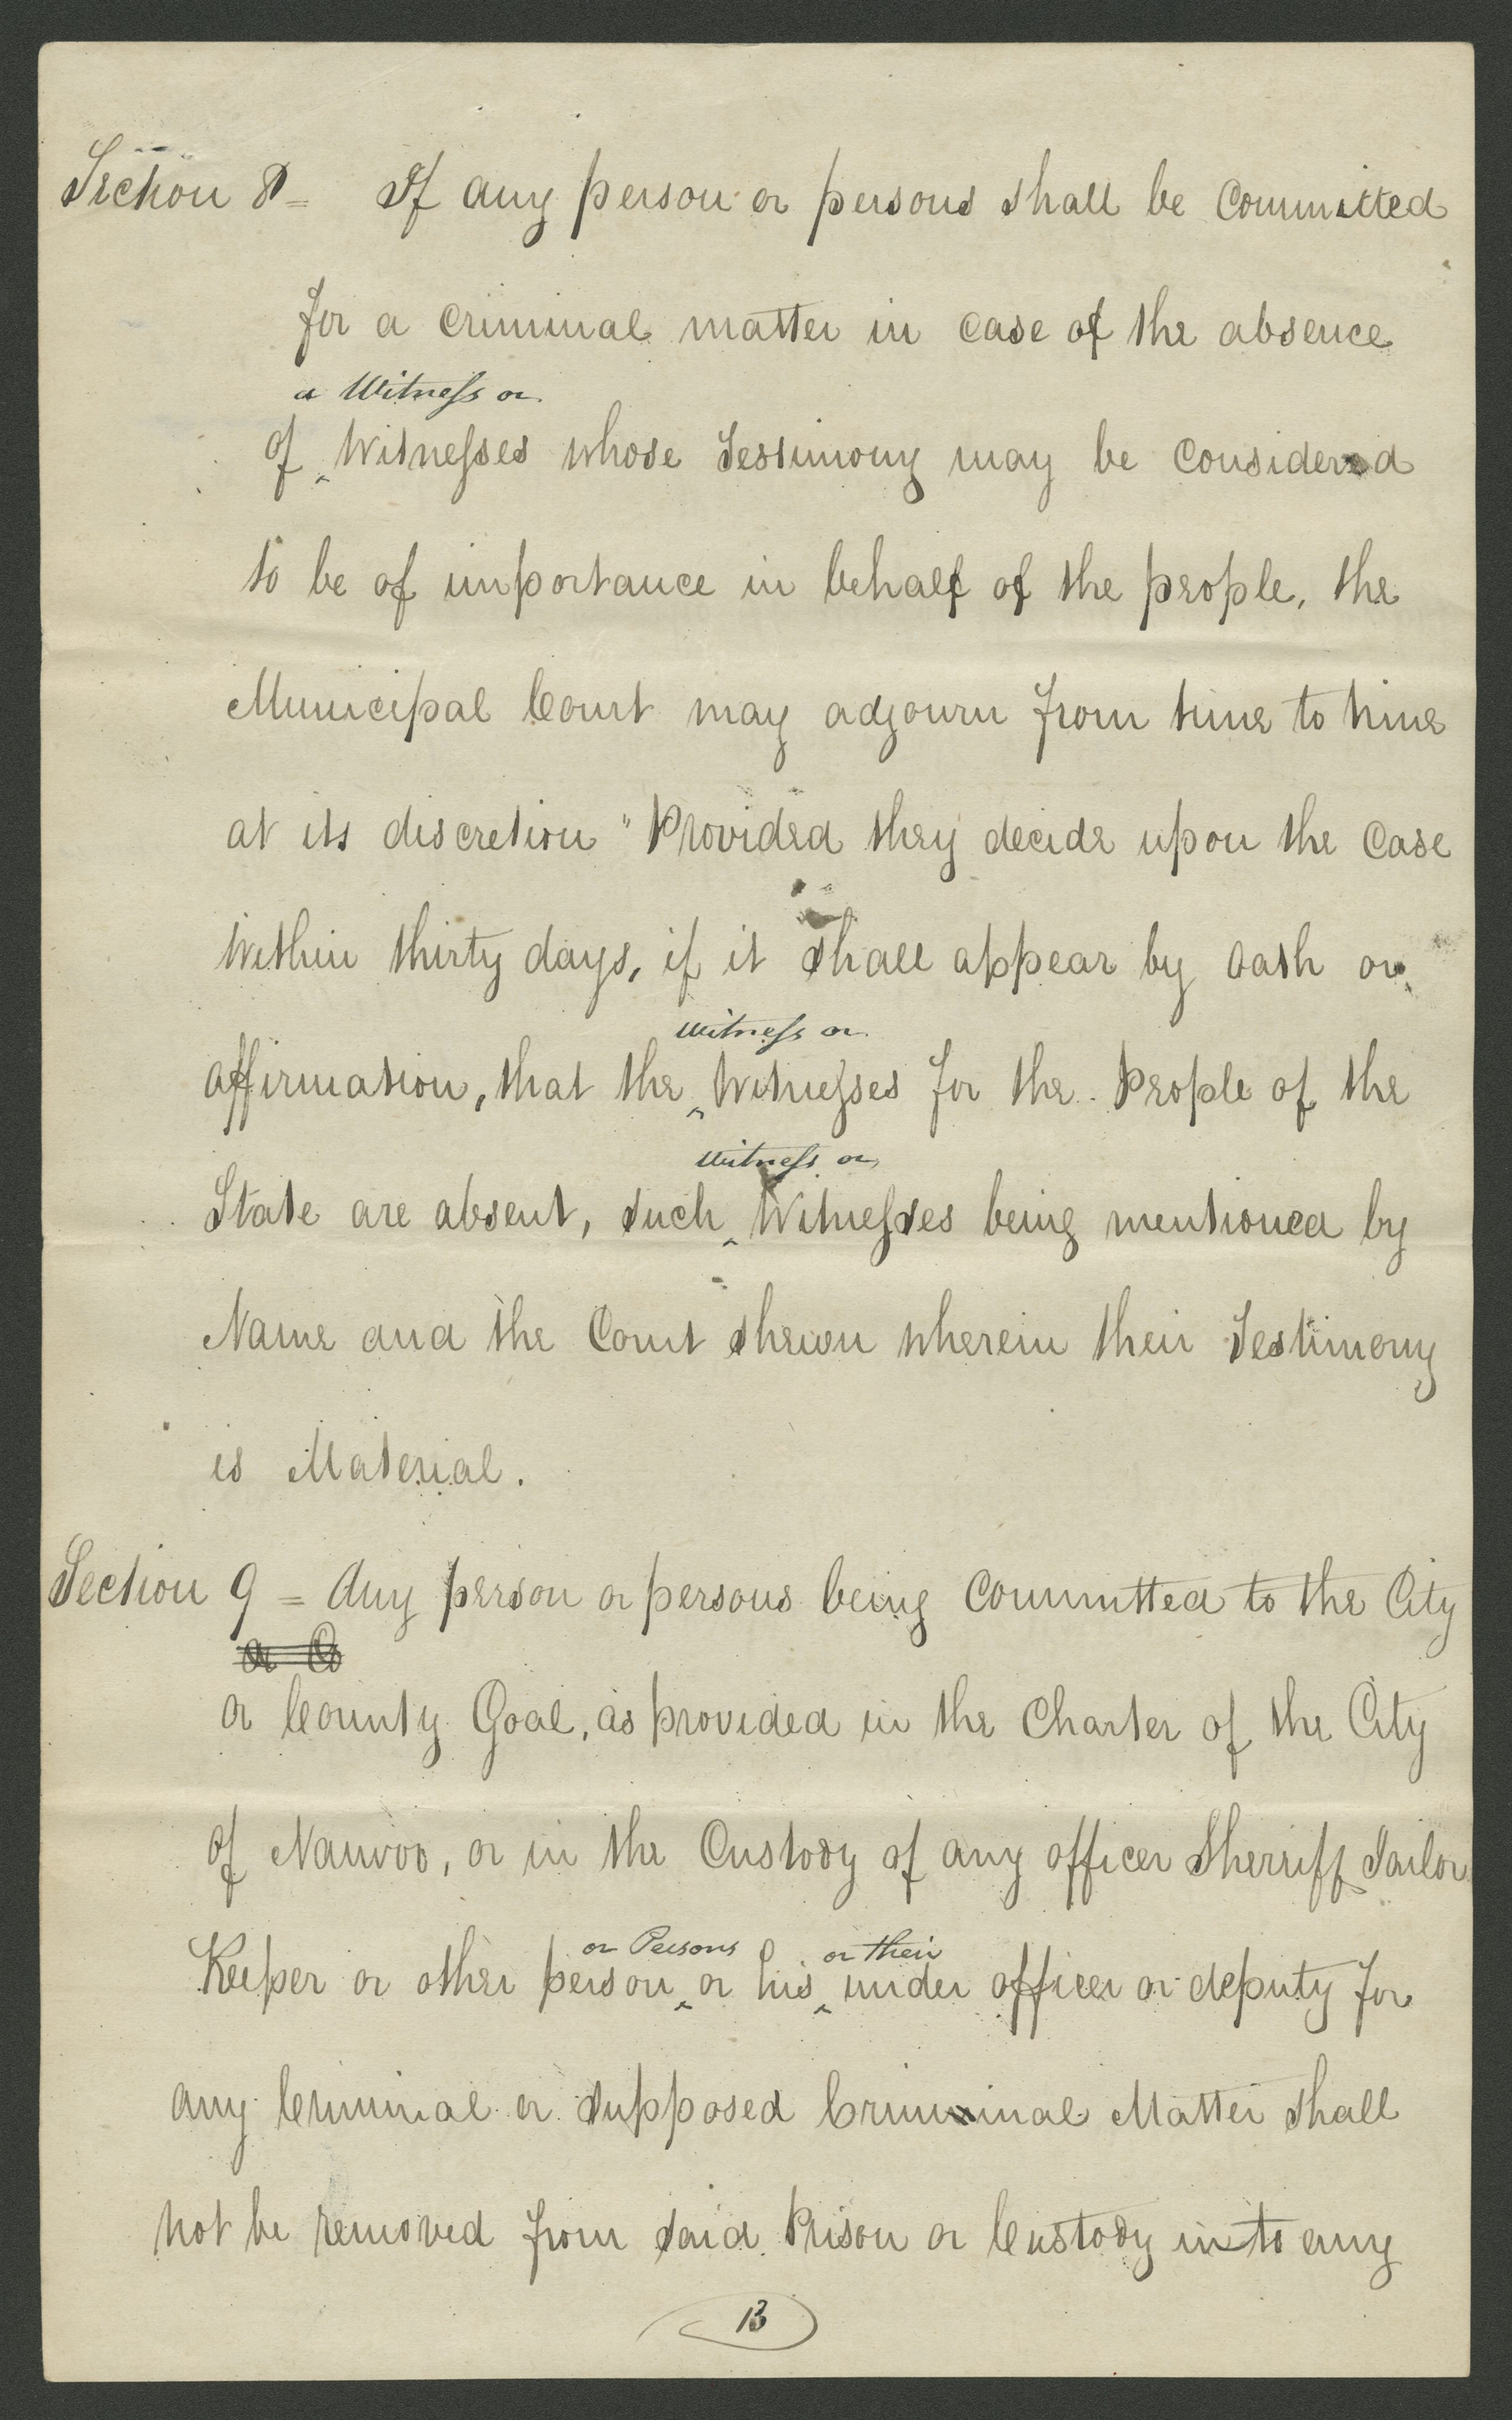 Section 8 = If any person or persons shall be Committed
for a criminal matter in case of the absence
a Witness or
of ‸ Witnesses whose Testimony may be Considered
to be of importance in behalf of the people, the
Municipal Court may adjourn from time to time
at its discretion " Provided they decide upon the Case
Within thirty days, if it shall appear by Oath or
witness or
affirmation, that the ‸ Witnesses for the People of the
witness or
State are absent, such ‸ Witnesses being mentioned by
Name and the Court shewn wherein their Testimony
is Material.
Section 9 = Any person or persons being Committed to the City
or Co
or County Goal, as provided in the Charter of the City
of Nauvoo, or in the Custody of any officer Sherriff Jailor
or Persons or their
Keeper or other person ‸ or his ‸ under officer or deputy for
any Criminal or supposed Criminal Matter shall
not be removed from said Prison or Custody in to any
13